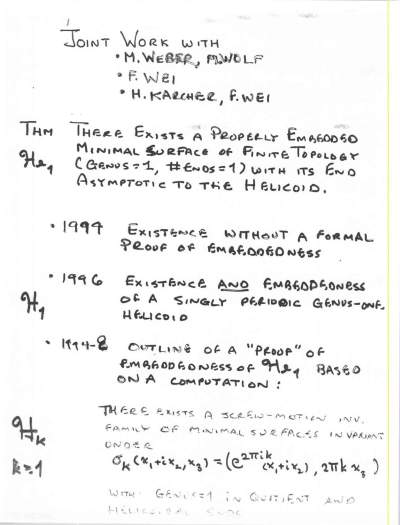 JOINT WORK WITH
• M. WEBER, M. WOLF
• F. WEI
• H. KARCHER, F. WEI
THM THERE EXISTS A PROPERLY EMBEDDED
He₁ MINIMAL SURFACE OF FINITE TOPOLOGY
(GENUS=1, #ENDS=1) WITH ITS END
ASYMPTOTIC TO THE HELICOID.
• EXISTENCE WITHOUT A FORMAL
PROOF OF EMBEDDEDNESS
• 1996 EXISTENCE AND EMBEDDEDNESS
H₁ OF A SINGLY PERIODIC GENUS-ONE
HELICOID
• 1994-8 OUTLINE OF A "PROOF" OF
EMBEDDEDNESS OF He₁ BASED
ON A COMPUTATION:
THERE EXISTS A SCREW-MOTION INV.
Hk FAMILY OF MINIMAL SURFACES INVARIANT
UNDER
σk(x₁+ix₂, x₃) = (e^{2πik}(x₁+ix₂), 2πk x₃)
WITH GENUS=1 IN QUOTIENT AND
HELICOIDAL